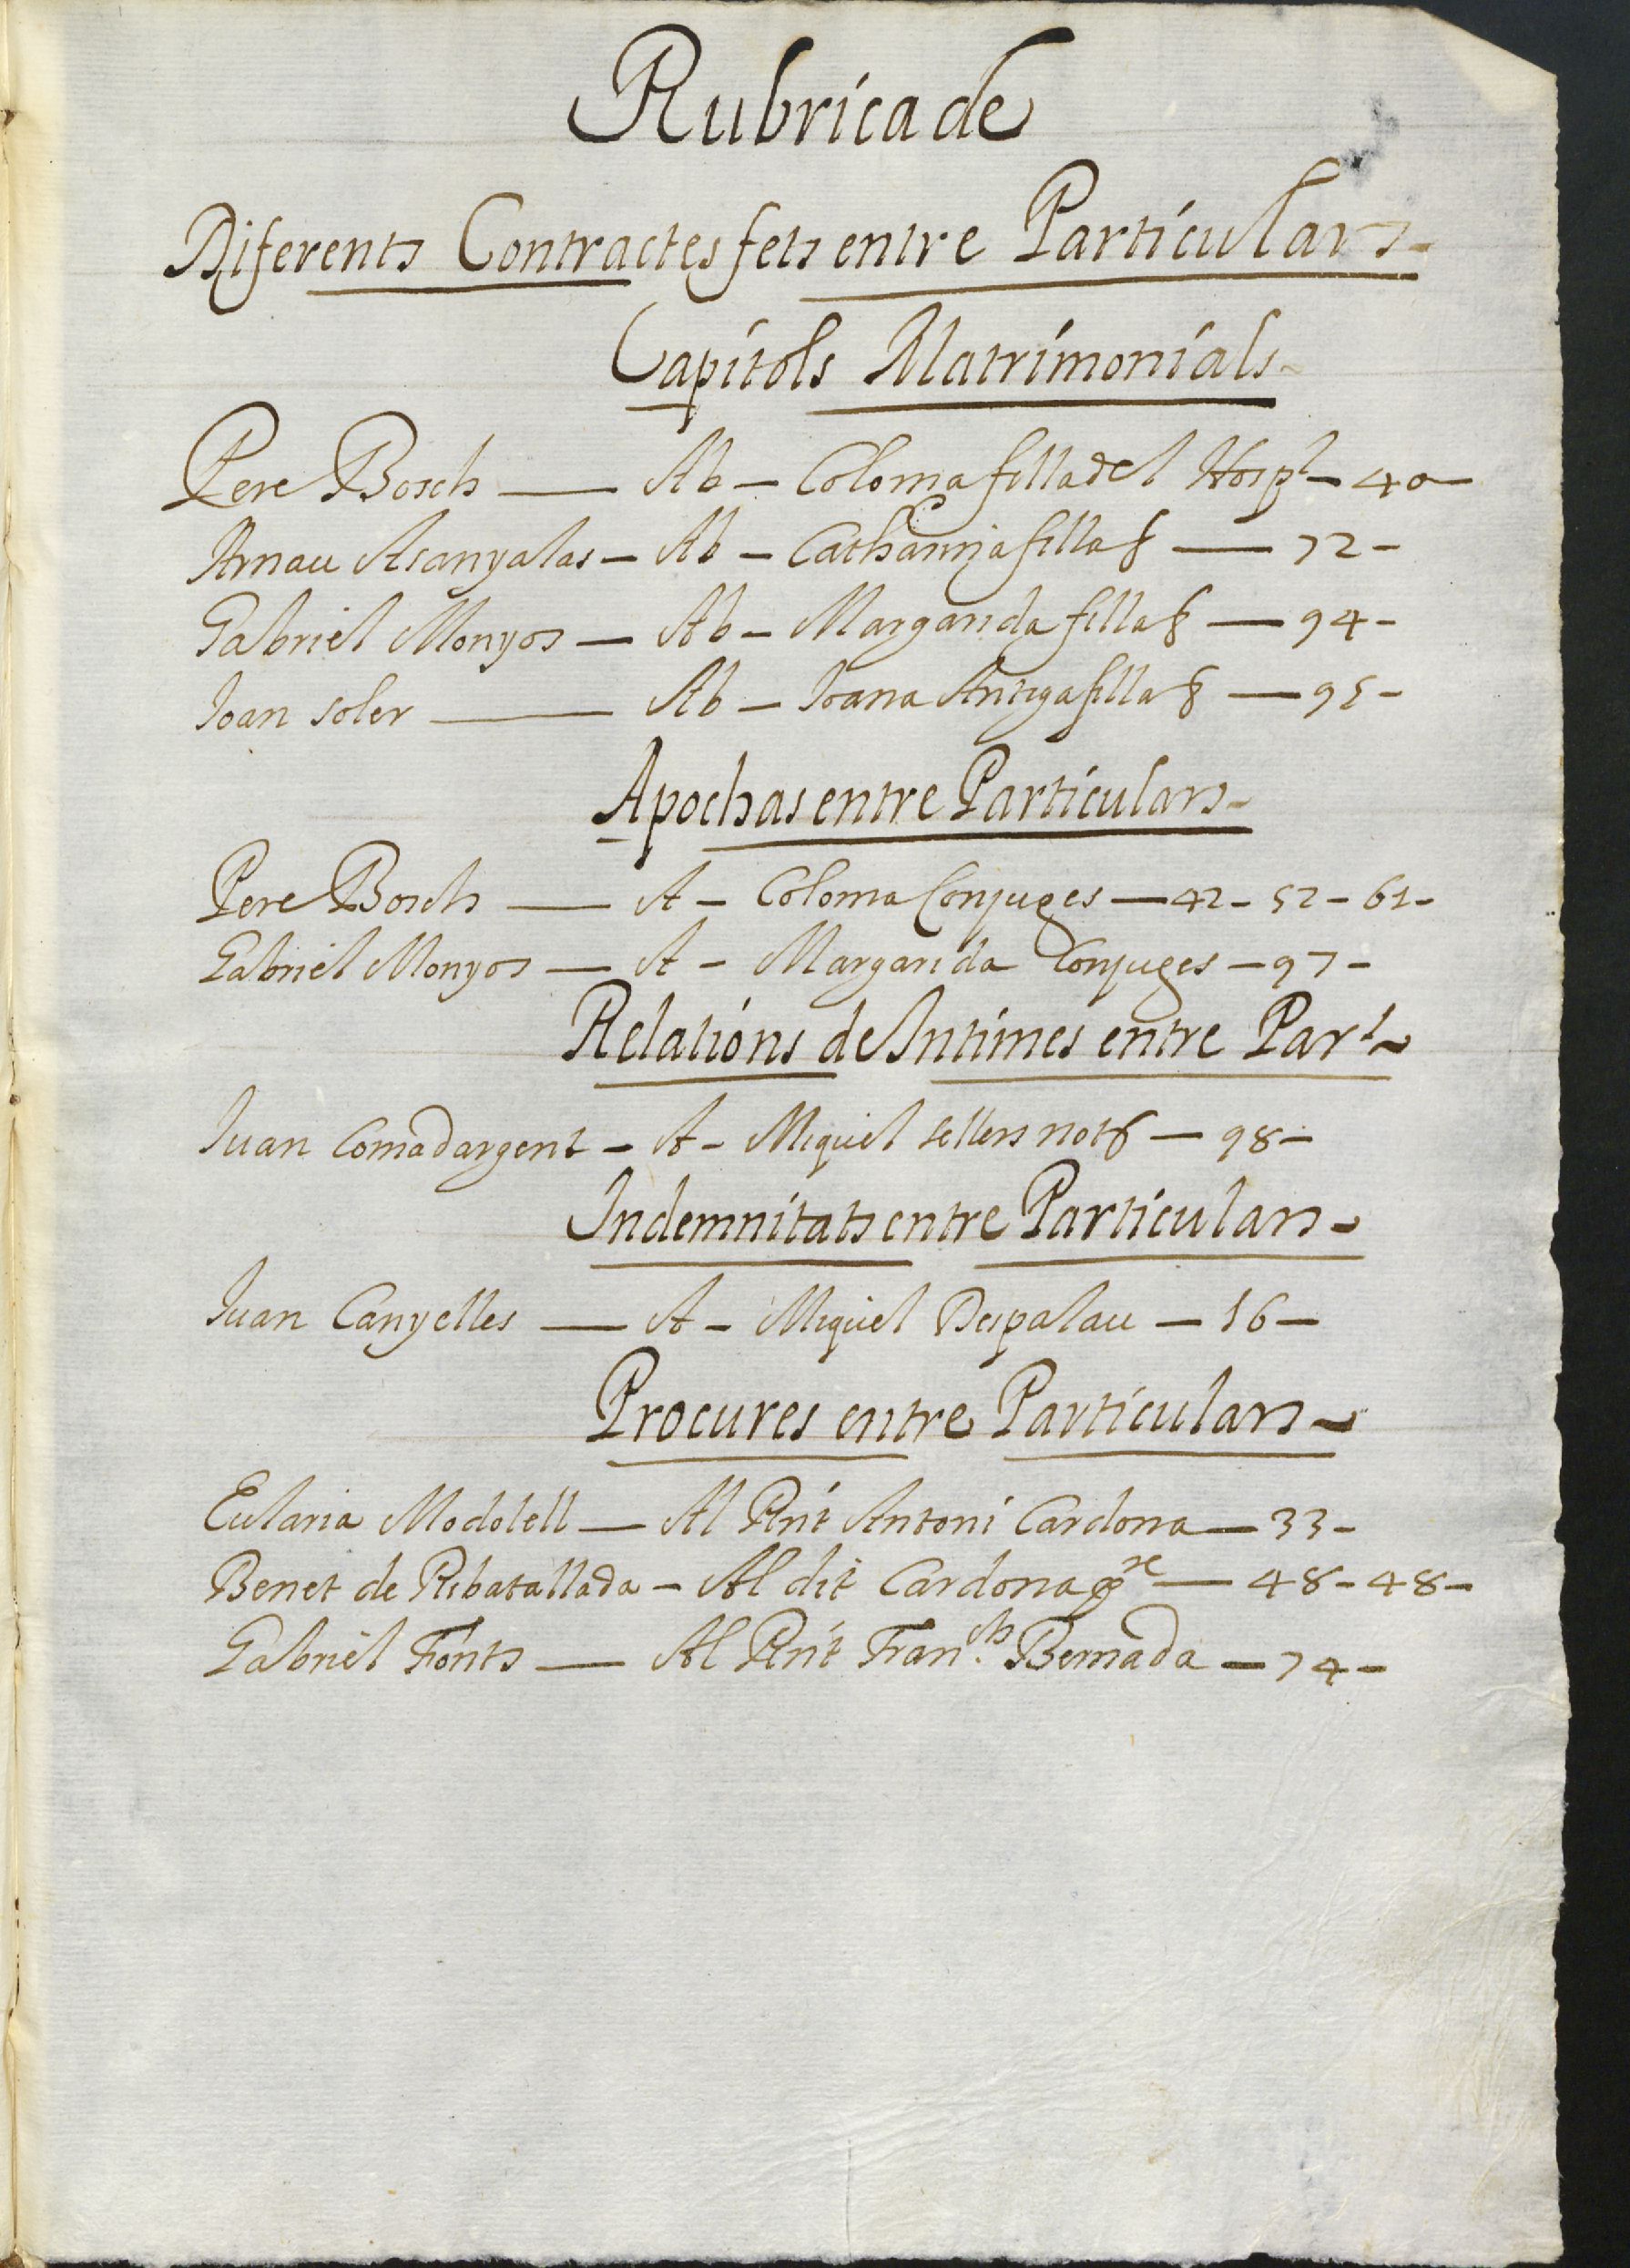 Rubrica de
Diferents Contractes fets entre Particulars-
Capitols Matrimonials-
Pere Bosch — Ab - Coloma filla del Hospl - 40 -
Arnau Asanyalas - Ab - Catharina filla & — 72 -
Gabriel Monyos - Ab - Margarida filla & — 94 -
Joan Soler — Ab - Joana Antiga filla & — 95 -
Apochas entre Particulars-
Pere Bosch — A - Coloma Conjuges — 42 - 52 - 61 -
Gabriel Monyos — A - Margarida Conjuges - 97 -
Relations de Intimes entre Parts
Juan Comadargent - A - Miquel Sellers not & - 98 -
Indemnitats entre Particulars -
Juan Canyelles — A - Miquel Despalau - 16 -
Procures entre Particulars -
Eularia Modolell — Al Rnt Antoni Cardona — 33 -
Benet de Ribatallada - Al dit Cardona pre — 48 - 48 -
Gabriel Fonts — Al Rnt Franch Bernada - 74 -